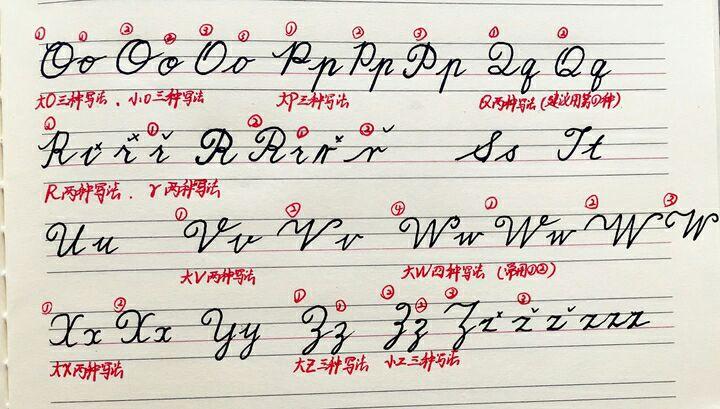 ① ① ② ② ③ ③ ① ② ③ ① ②
Oo Oo Oo Pp Pp Pp Qq Qq
大O三种写法、小o三种写法 大P三种写法 Q两种写法(建议用第①种)
① × × ① ✓ ② ① × ② ✓
Rr r r R Rr r r Ss Tt
R两种写法、r两种写法
① ② ④ ① ② ③
Uu Vv Vv Ww Ww W W
大V两种写法 大W四种写法 (常用①②)
① ② ① ① ② ② ③ × ③ ✓ ✓
Xx Xx Yy Zz Zz Zz z z zzz
大X两种写法 大Z三种写法 小z三种写法